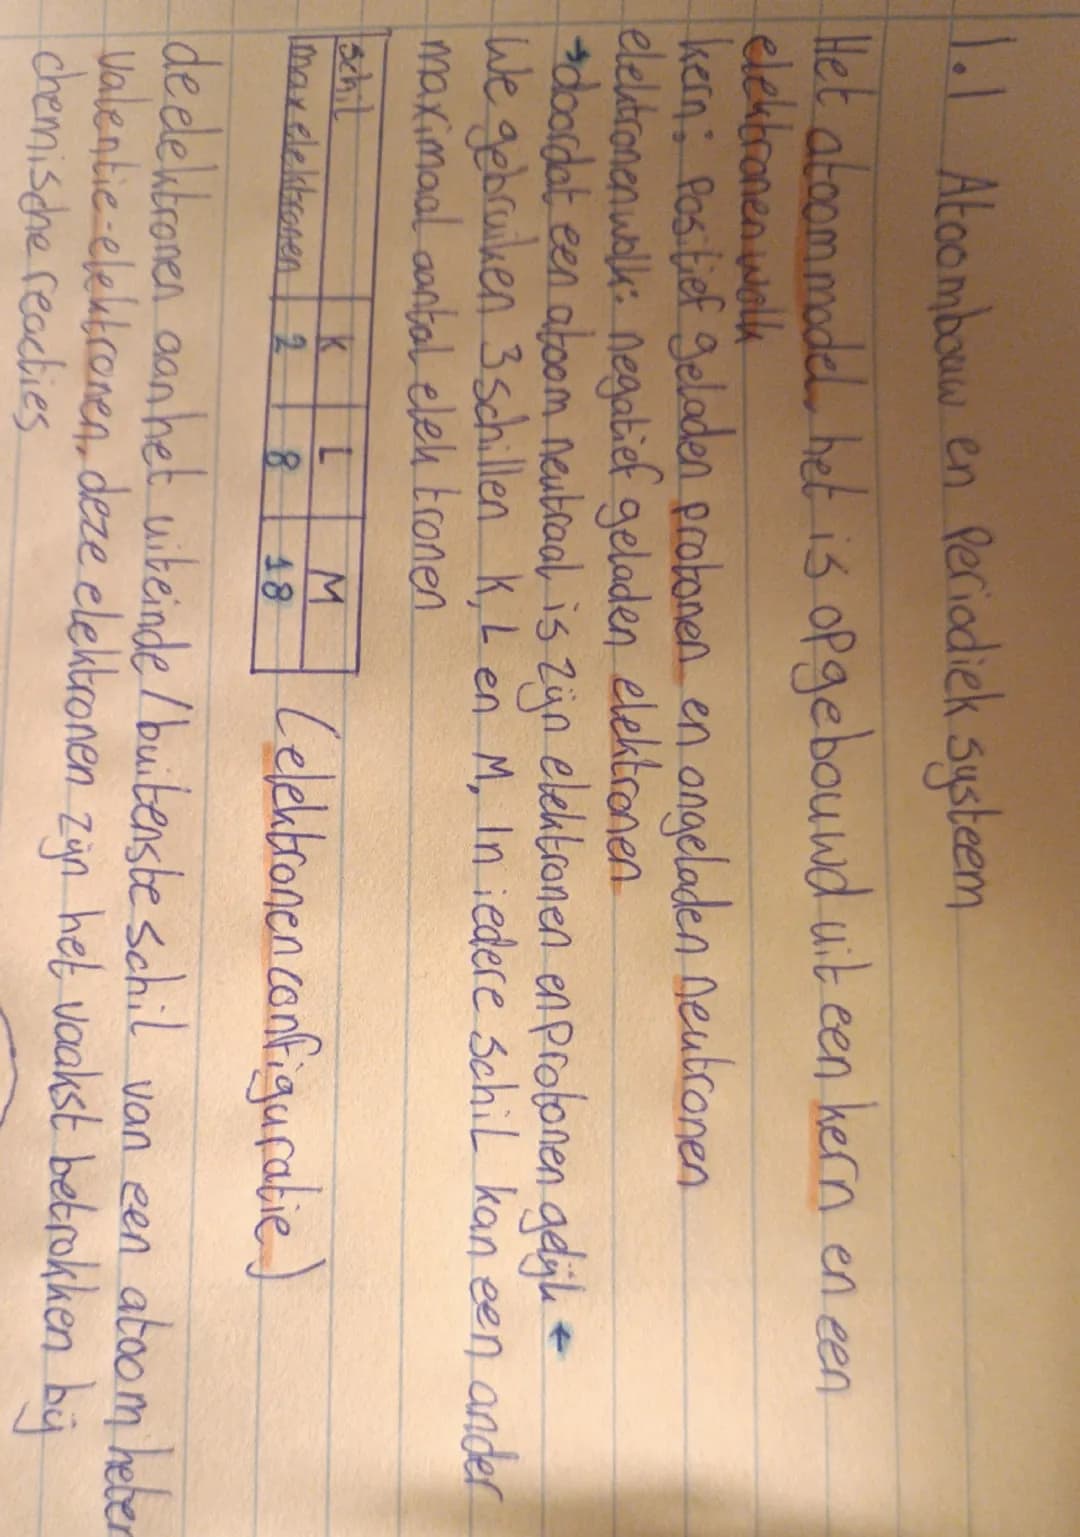 1.1 Atoombouw en Periodiek systeem
Het atoommodel, het is opgebouwd uit een kern en een
elektronenwolk
kern: Positief geladen protonen en ongeladen neutronen
elektronenwolk: negatief geladen elektronen
→doordat een atoom neutraal is zijn elektronen en protonen gelijk ←
We gebruiken 3 schillen K, L en M, In iedere schil kan een ander
maximaal aantal elektronen
schil K L M
max elektronen 2 8 18 (elektronenconfiguratie)
de elektronen aan het uiteinde/buitenste schil van een atoom heten
valentie-elektronen, deze elektronen zijn het vaakst betrokken bij
chemische reacties